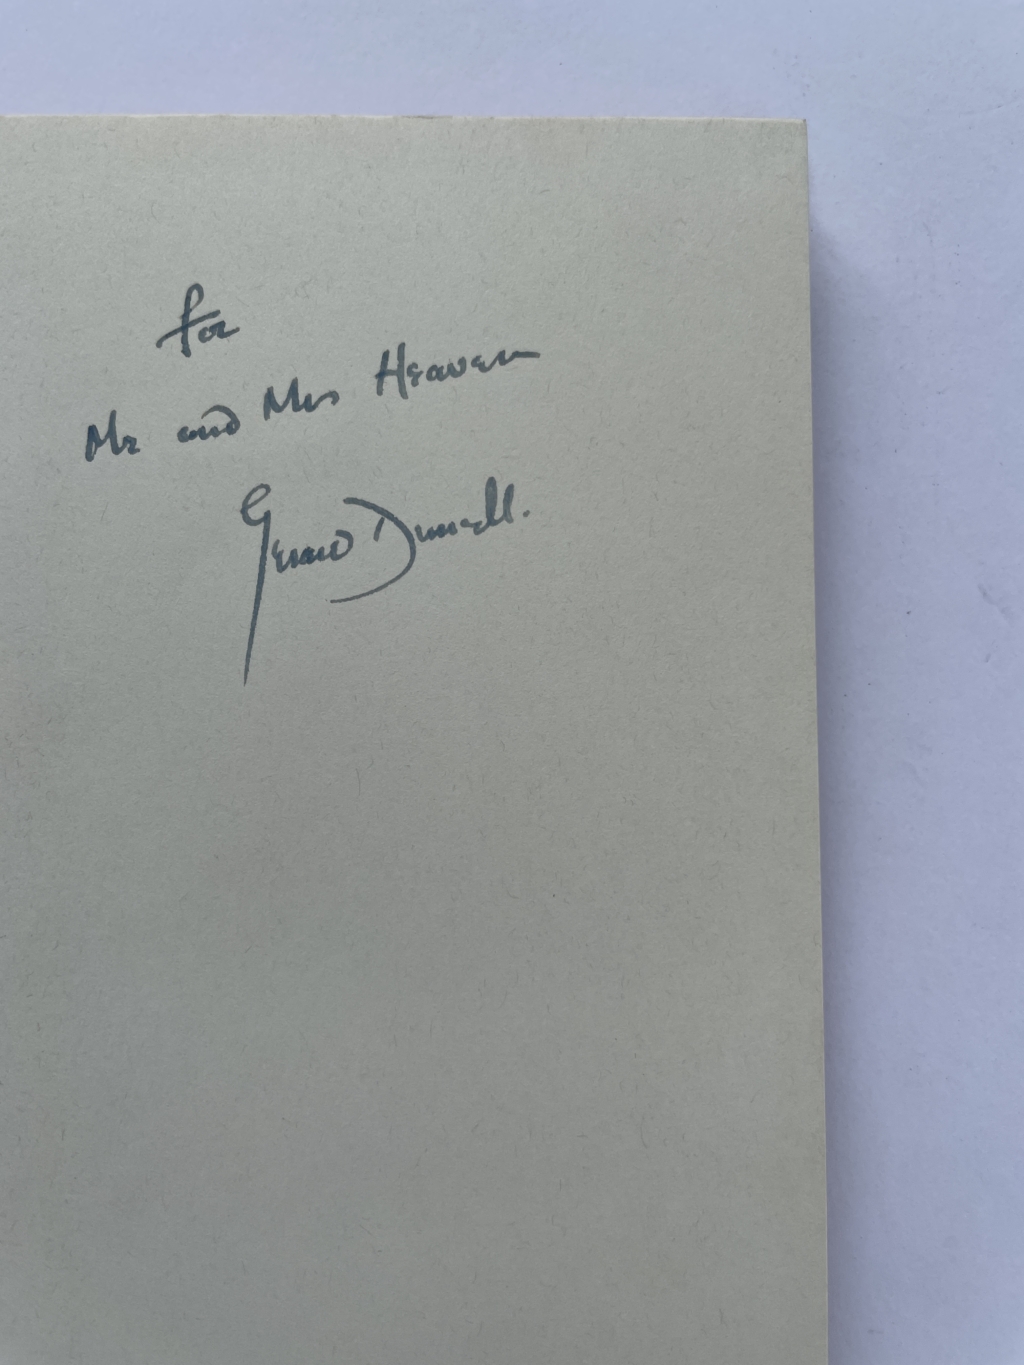 for
Mr and Mrs Heaven
Gerald Durrell.